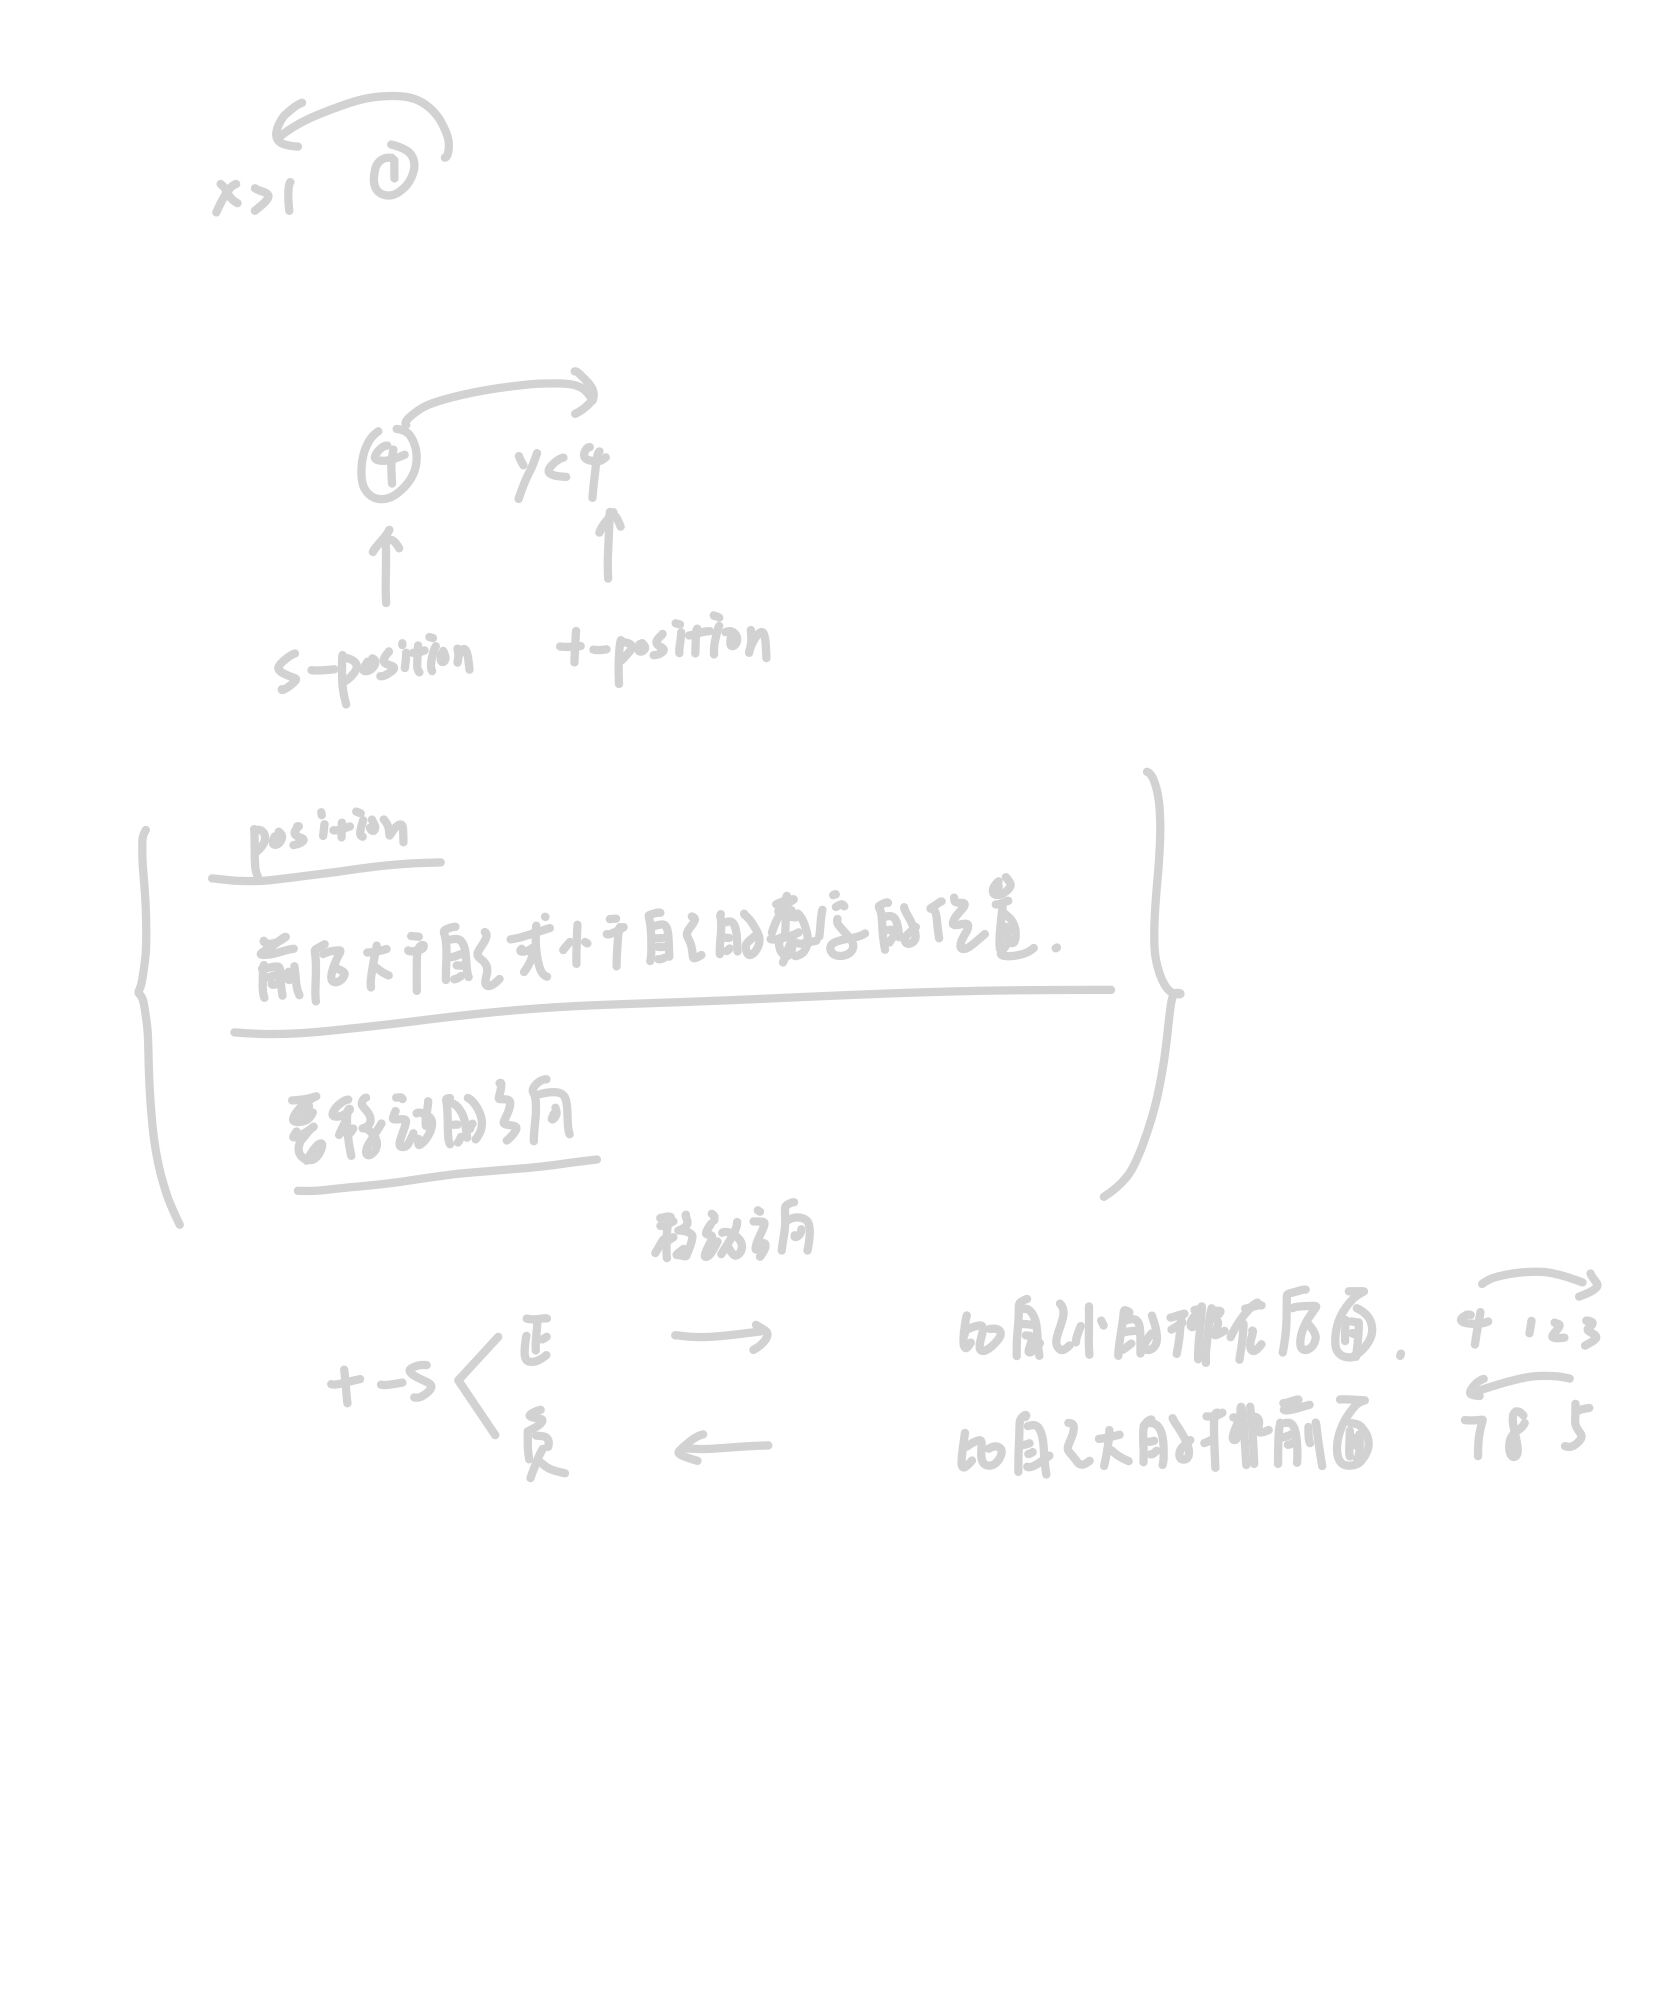 x>1 ①
④ y<4
s-position t-position
position
前后大于自己或小于自己的最远的位置.
要移动的方向
移动方向
t-s 正 → 比自己小的都在后面. 4 1 2 3
负 ← 比自己大的排前面 7 8 5